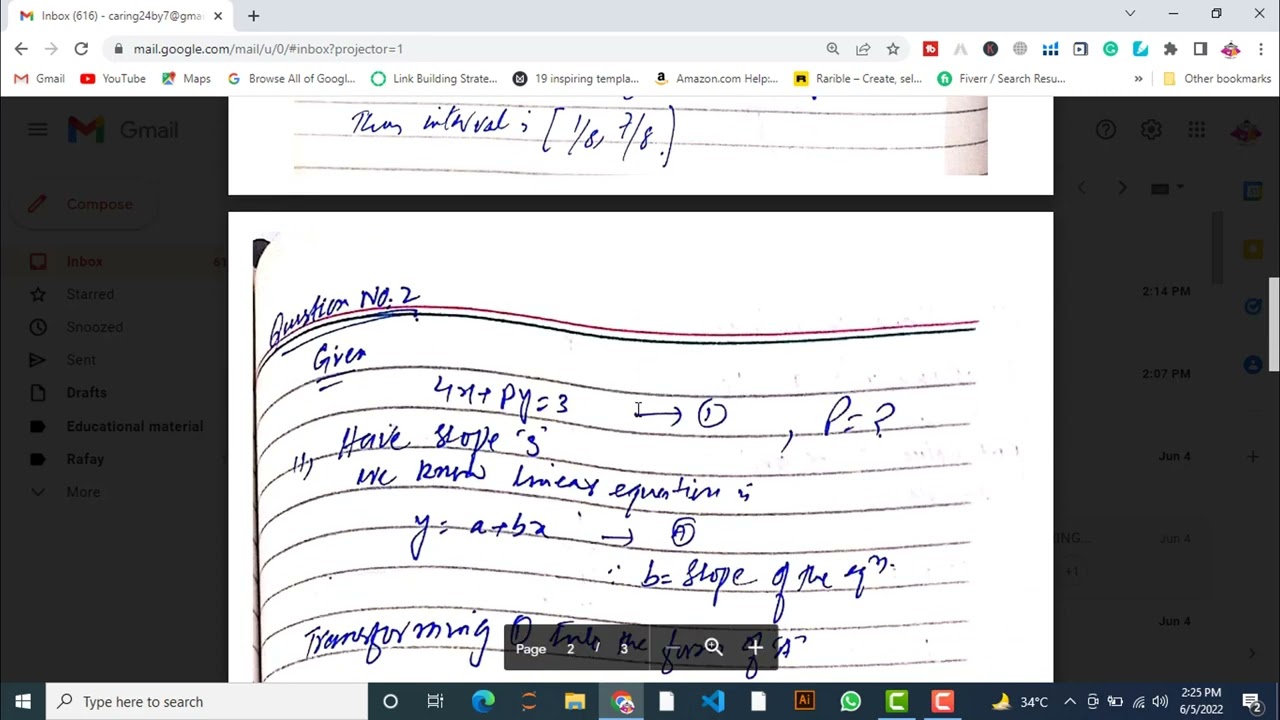 Inbox (616) - caring24by7@gma
mail.google.com/mail/u/0/#inbox?projector=1
Gmail
YouTube
Maps
Browse All of Googl...
Link Building Strate...
19 inspiring templa...
Amazon.com Help:...
Rarible – Create, sel...
Fiverr / Search Resu...
»
Other bookmarks
Thus interval is [1/8, 7/8.]
Gmail
Compose
Inbox
Starred
Snoozed
Sent
Drafts
Educational material
Rafay
More
2:14 PM
2:07 PM
Jun 4
Jun 4
+1
Jun 4
Question No. 2
Given
4x + Py = 3 → ① , P = ?
Have slope "3"
we know linear equation is
y = a + bx → Ⓐ
∴ b = slope of the eqn.
Transforming ① into the form of "A"
Page 2 / 3
Type here to search
34°C
2:25 PM
6/5/2022
2